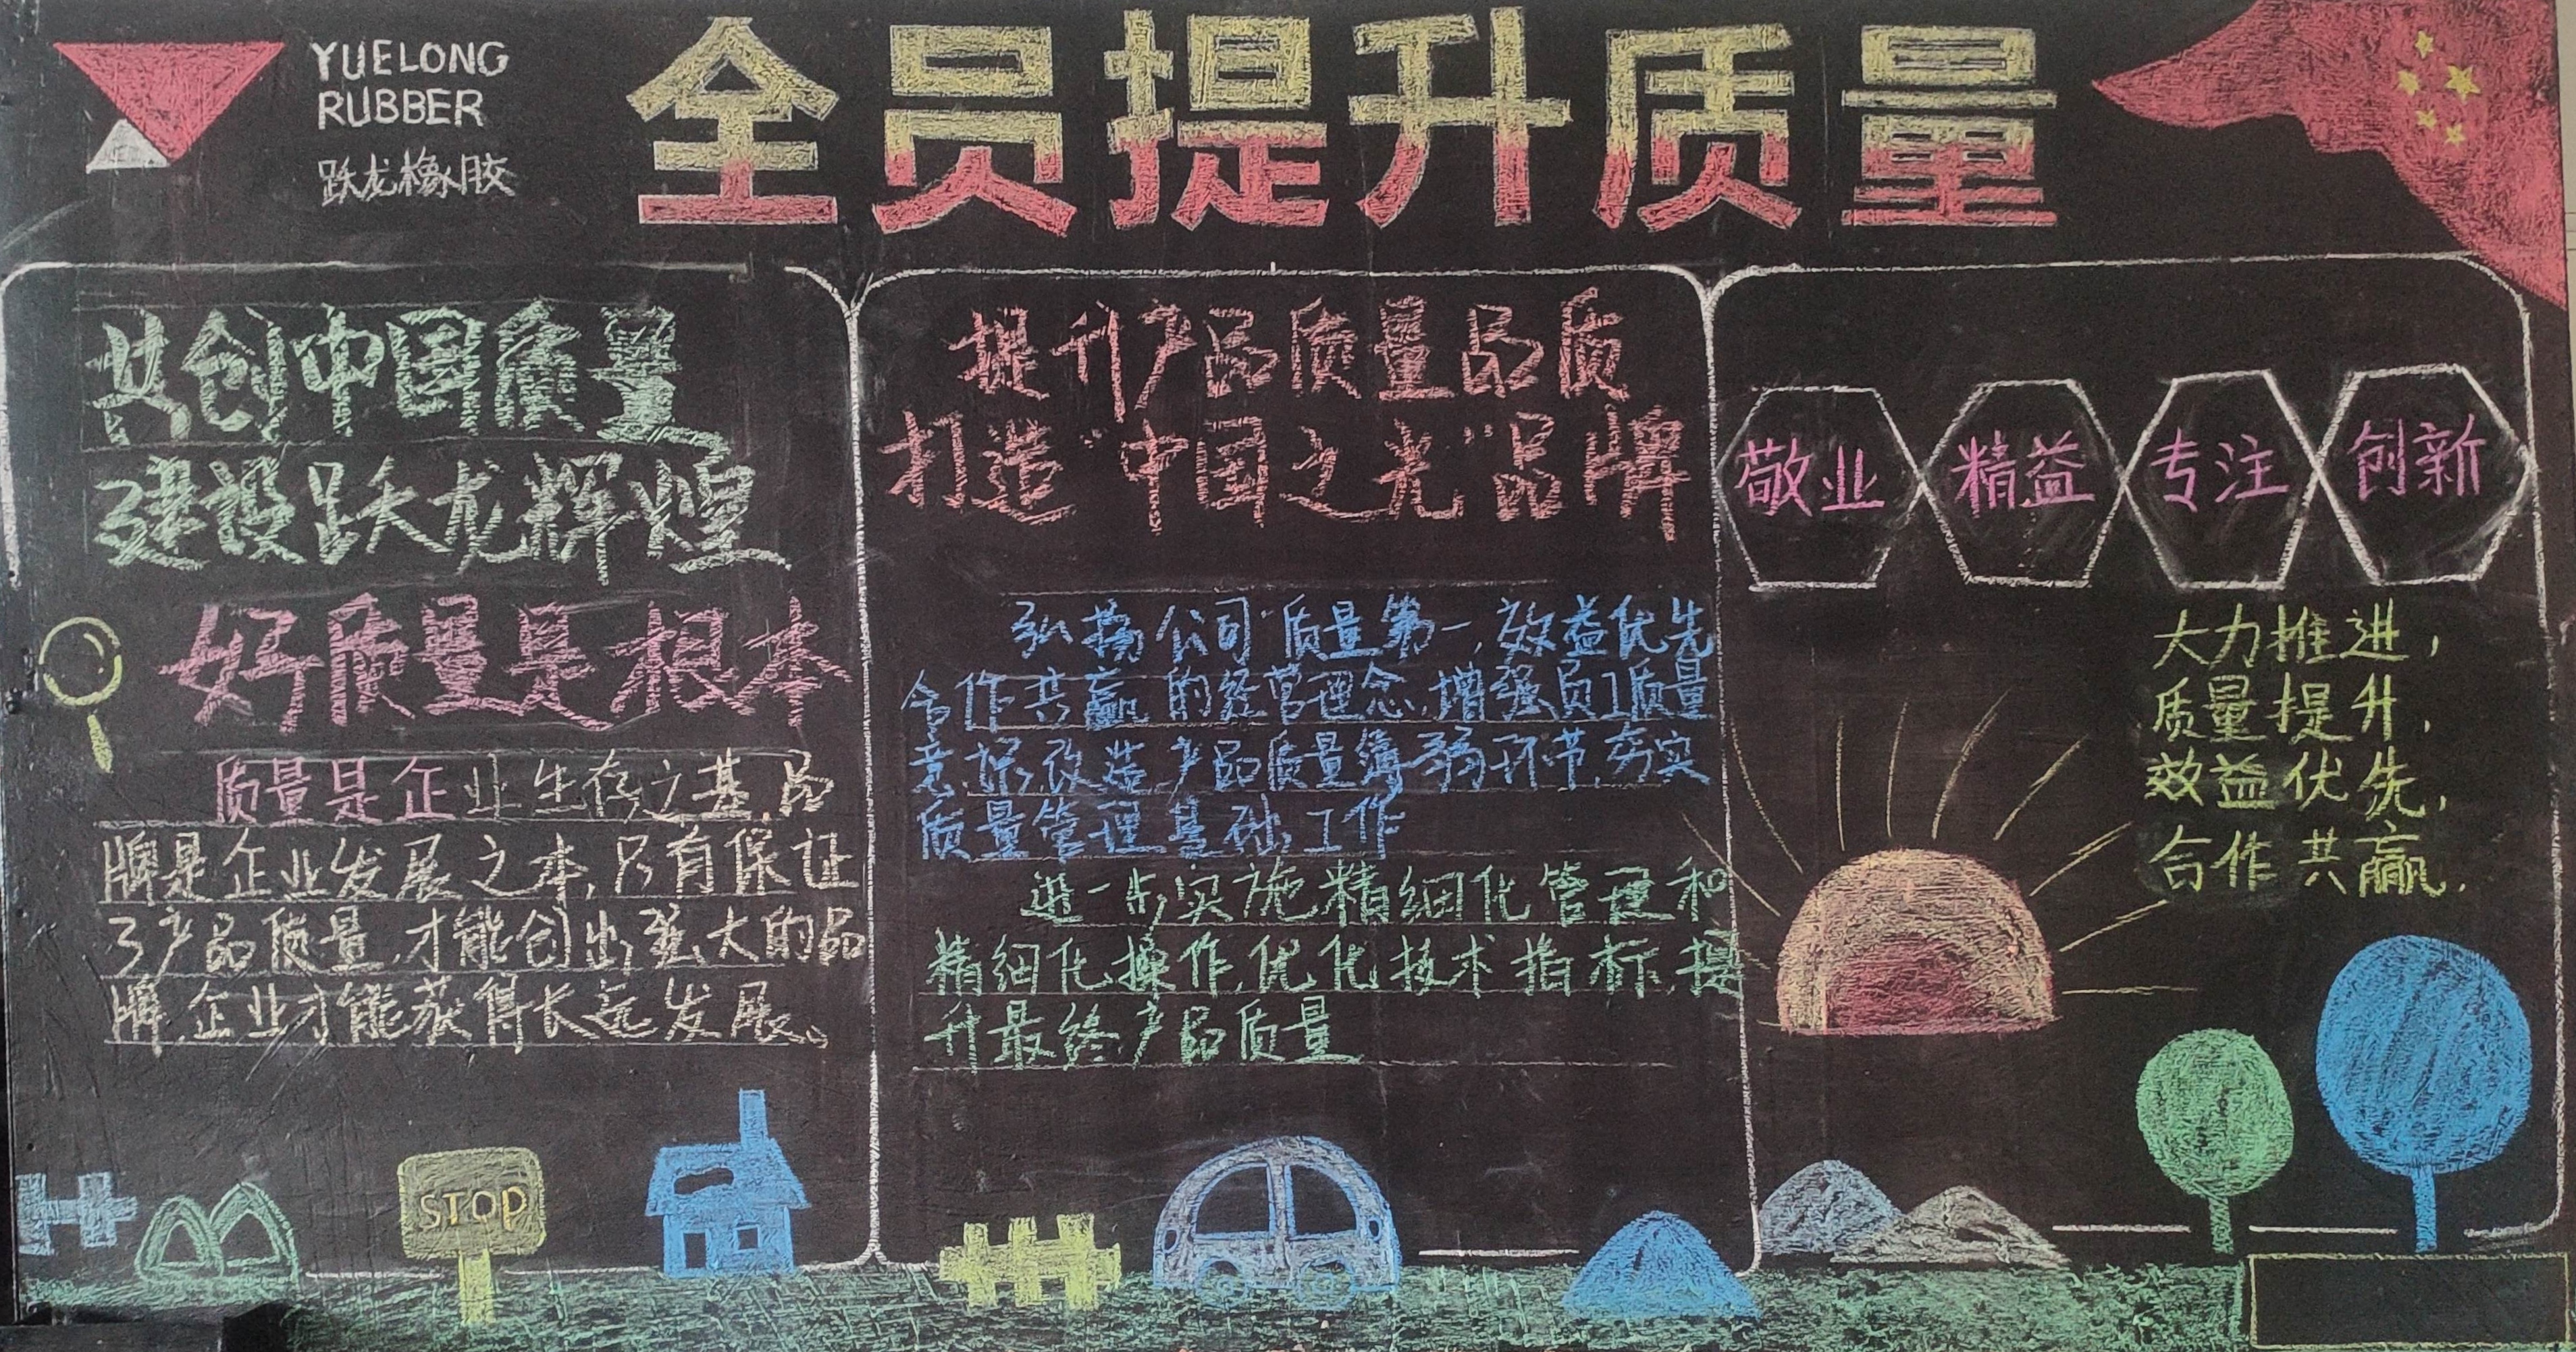 YUELONG
RUBBER
跃龙橡胶
全员提升质量
共创中国质量
建设跃龙辉煌
好质量是根本
质量是企业生存之基,品
牌是企业发展之本,只有保证
了产品质量,才能创出强大的品
牌,企业才能获得长远发展。
提升产品质量品质
打造“中国之光”品牌
弘扬公司“质量第一,效益优先
合作共赢”的经营理念,增强员工质量
意识,改造产品质量薄弱环节,夯实
质量管理基础工作
进一步实施精细化管理和
精细化操作,优化技术指标,提
升最终产品质量
敬业 精益 专注 创新
大力推进,
质量提升,
效益优先,
合作共赢.
STOP